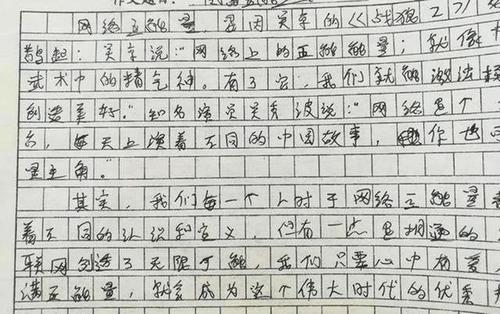 网络正能量，是因吴京的《战狼2》
鹊起：吴京说："网络上的正能量；就像
武术中的精气神。有了它，我们就能激浊扬
创造美好。"知名演员关秀波说："网络是个
台，每天上演着不同的中国故事，你也
是主角。"
其实，我们每一个人对于网络正能量
着不同的认识和定义，但有一点是相通的
联网创造了无限可能，我们只要心中有爱
满正能量，就会成为这个伟大时代的优秀